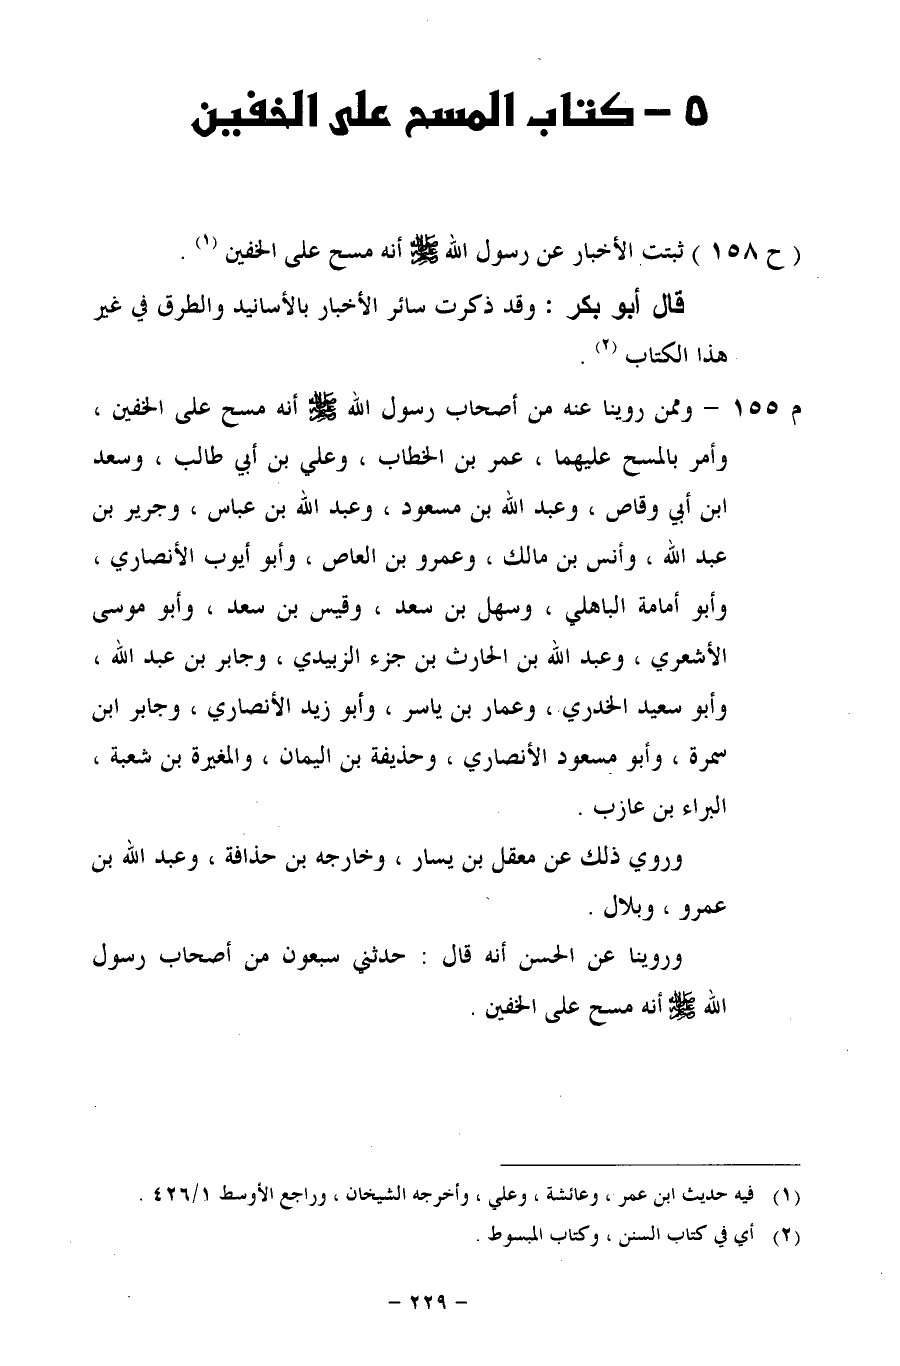 ٥ - كتاب المسح على الخفين
( ح ١٥٨ ) ثبتت الأخبار عن رسول الله ﷺ أنه مسح على الخفين (١) .
قال أبو بكر : وقد ذكرت سائر الأخبار بالأسانيد والطرق في غير
هذا الكتاب (٢) .
م ١٥٥ - وممن روينا عنه من أصحاب رسول الله ﷺ أنه مسح على الخفين ،
وأمر بالمسح عليهما ، عمر بن الخطاب ، وعلي بن أبي طالب ، وسعد
ابن أبي وقاص ، وعبد الله بن مسعود ، وعبد الله بن عباس ، وجرير بن
عبد الله ، وأنس بن مالك ، وعمرو بن العاص ، وأبو أيوب الأنصاري ،
وأبو أمامة الباهلي ، وسهل بن سعد ، وقيس بن سعد ، وأبو موسى
الأشعري ، وعبد الله بن الحارث بن جزء الزبيدي ، وجابر بن عبد الله ،
وأبو سعيد الخدري ، وعمار بن ياسر ، وأبو زيد الأنصاري ، وجابر ابن
سمرة ، وأبو مسعود الأنصاري ، وحذيفة بن اليمان ، والمغيرة بن شعبة ،
البراء بن عازب .
وروي ذلك عن معقل بن يسار ، وخارجه بن حذافة ، وعبد الله بن
عمرو ، وبلال .
وروينا عن الحسن أنه قال : حدثني سبعون من أصحاب رسول
الله ﷺ أنه مسح على الخفين .
(١) فيه حديث ابن عمر ، وعائشة ، وعلي ، وأخرجه الشيخان ، وراجع الأوسط ٤٢٦/١ .
(٢) أي في كتاب السنن ، وكتاب المبسوط .
- ٢٢٩ -